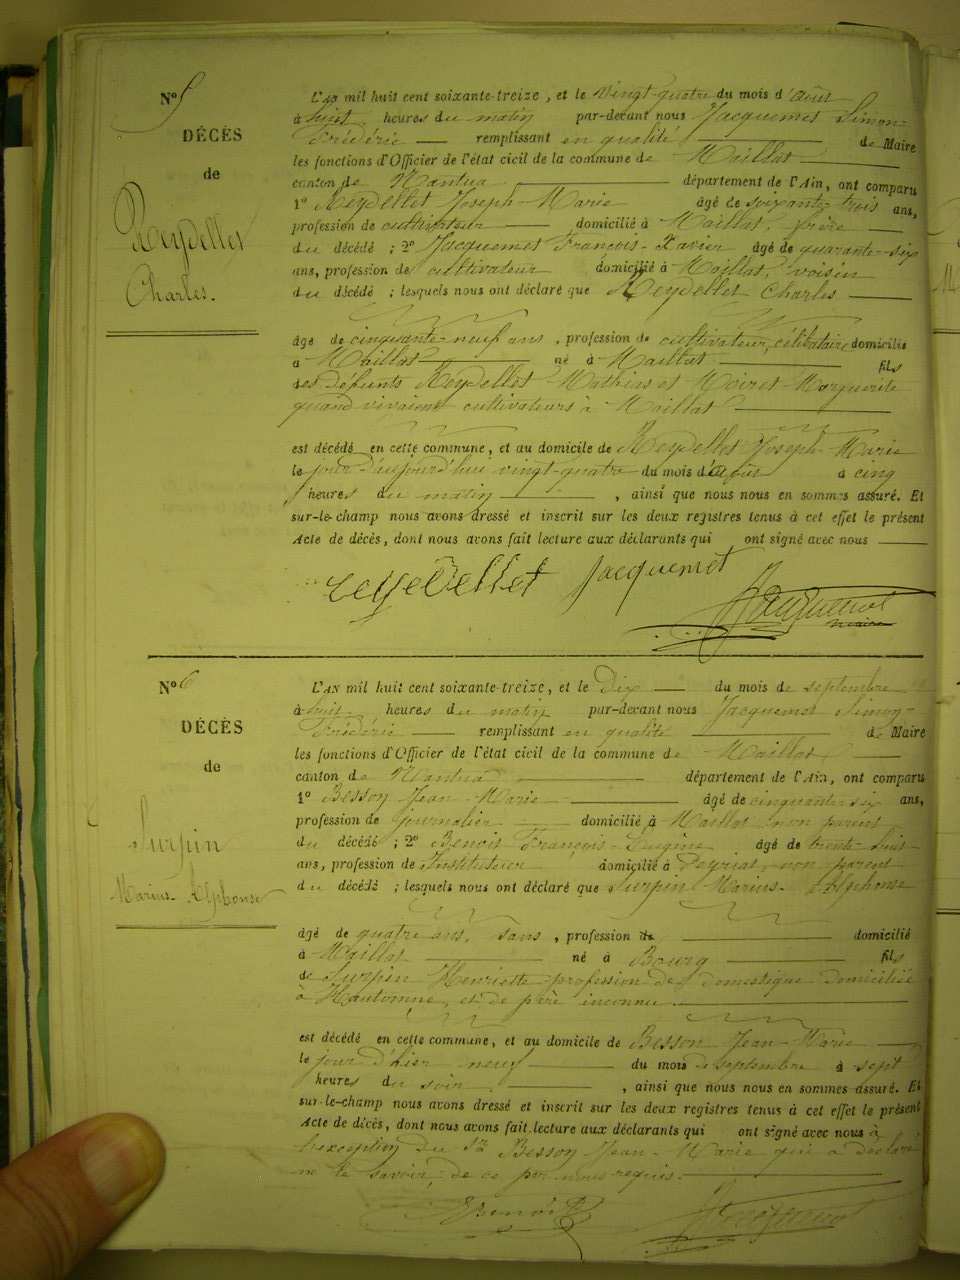 N° 5
DÉCÈS
de
Reydellet
Charles.
L'AN mil huit cent soixante-treize, et le vingt-quatre du mois d'août
à huit heures du matin par-devant nous Jacquemet Simon-
Frédéric remplissant en qualité de Maire
les fonctions d'Officier de l'état civil de la commune de Maillat
canton de Nantua département de l'Ain, ont comparu
1° Reydellet Joseph-Marie âgé de soixante-trois ans,
profession de cultivateur domicilié à Maillat, frère
du décédé ; 2° Jacquemet François-Xavier âgé de quarante-six
ans, profession de cultivateur domicilié à Maillat, voisin
du décédé ; lesquels nous ont déclaré que Reydellet Charles
âgé de cinquante-neuf ans, profession de cultivateur, célibataire domicilié
à Maillat né à Maillat fils
des défunts Reydellet Mathias et Moiret Marguerite
quand vivaient cultivateurs à Maillat
est décédé en cette commune, et au domicile de Reydellet Joseph-Marie
le jour d'aujourd'hui vingt-quatre du mois d'août à cinq
heures du matin, ainsi que nous nous en sommes assuré. Et
sur-le-champ nous avons dressé et inscrit sur les deux registres tenus à cet effet le présent
Acte de décès, dont nous avons fait lecture aux déclarants qui ont signé avec nous
reydellet Jacquemet Jacquemet
maire
N° 6
DÉCÈS
de
Surpin
Marius-Alphonse
L'AN mil huit cent soixante-treize, et le Dix du mois de septembre
à huit heures du matin par-devant nous Jacquemet Simon-
Frédéric remplissant en qualité de Maire
les fonctions d'Officier de l'état civil de la commune de Maillat
canton de Nantua département de l'Ain, ont comparu
1° Besson Jean-Marie âgé de cinquante-six ans,
profession de journalier domicilié à Maillat non parent
du décédé ; 2° Benoit François-Eugène âgé de trente-huit
ans, profession de Instituteur domicilié à Peyriat, non parent
du décédé ; lesquels nous ont déclaré que Surpin Marius-Alphonse
âgé de quatre ans, sans, profession de domicilié
à Maillat né à Bourg fils
de Surpin Henriette profession de domestique domiciliée
à Hautonne, et de père inconnu.
est décédé en cette commune, et au domicile de Besson Jean-Marie
le jour d'hier neuf du mois de septembre à sept
heures du soir, ainsi que nous nous en sommes assuré. Et
sur-le-champ nous avons dressé et inscrit sur les deux registres tenus à cet effet le présent
Acte de décès, dont nous avons fait lecture aux déclarants qui ont signé avec nous à
l'exception du Sr Besson Jean-Marie qui a déclaré
ne le savoir, de ce par nous requis.
Benoit Jacquemet